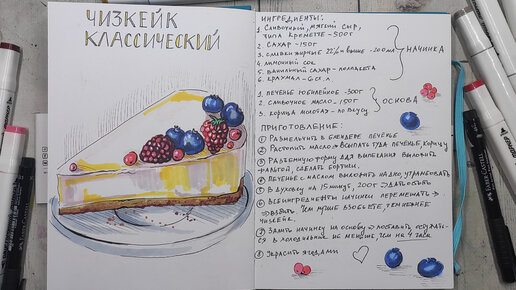 ЧИЗКЕЙК
КЛАССИЧЕСКИЙ
ИНГРЕДИЕНТЫ:
1. СЛИВОЧНЫЙ, МЯГКИЙ СЫР,
ТИПА КРЕМЕТТЕ - 500Г
2. САХАР - 150Г
3. СЛИВКИ ЖИРНЫЕ 22% И ВЫШЕ - 20 МЛ
4. ЛИМОННЫЙ СОК
5. ВАНИЛЬНЫЙ САХАР - ПОЛПАКЕТА
6. КРАХМАЛ - 6 СТ. Л.
НАЧИНКА
1. ПЕЧЕНЬЕ ЮБИЛЕЙНОЕ - 300Г
2. СЛИВОЧНОЕ МАСЛО - 150Г
3. КОРИЦА МОЛОТАЯ - ПО ВКУСУ
ОСНОВА
ПРИГОТОВЛЕНИЕ:
1 РАЗМЕЛЬЧИТЬ В БЛЕНДЕРЕ ПЕЧЕНЬЕ
2 РАСТОПИТЬ МАСЛО → ВСЫПАТЬ ТУДА ПЕЧЕНЬЕ, КОРИЦУ
3 РАЗЪЕМНУЮ ФОРМУ ДЛЯ ВЫПЕКАНИЯ ВЫЛОЖИТЬ
ФОЛЬГОЙ, СДЕЛАТЬ БОРТИКИ.
4 ПЕЧЕНЬЕ С МАСЛОМ ВЫЛОЖИТЬ НА ДНО, УТРАМБОВАТЬ
5 В ДУХОВКУ НА 15 МИНУТ, 200Г → ДАТЬ ОСТЫТЬ
6 ВСЕ ИНГРЕДИЕНТЫ НАЧИНКИ ПЕРЕМЕШАТЬ →
→ ВЗБИТЬ. ЧЕМ ЛУЧШЕ ВЗОБЬЕТЕ, ТЕМ НЕЖНЕЕ
ЧИЗКЕЙК.
7 ЗАЛИТЬ НАЧИНКУ НА ОСНОВУ → ПОСТАВИТЬ ОСТУЖАТЬ-
СЯ В ХОЛОДИЛЬНИК НЕ МЕНЬШЕ, ЧЕМ НА 4 ЧАСА
8 УКРАСИТЬ ЯГОДАМИ
FABER-CASTELL